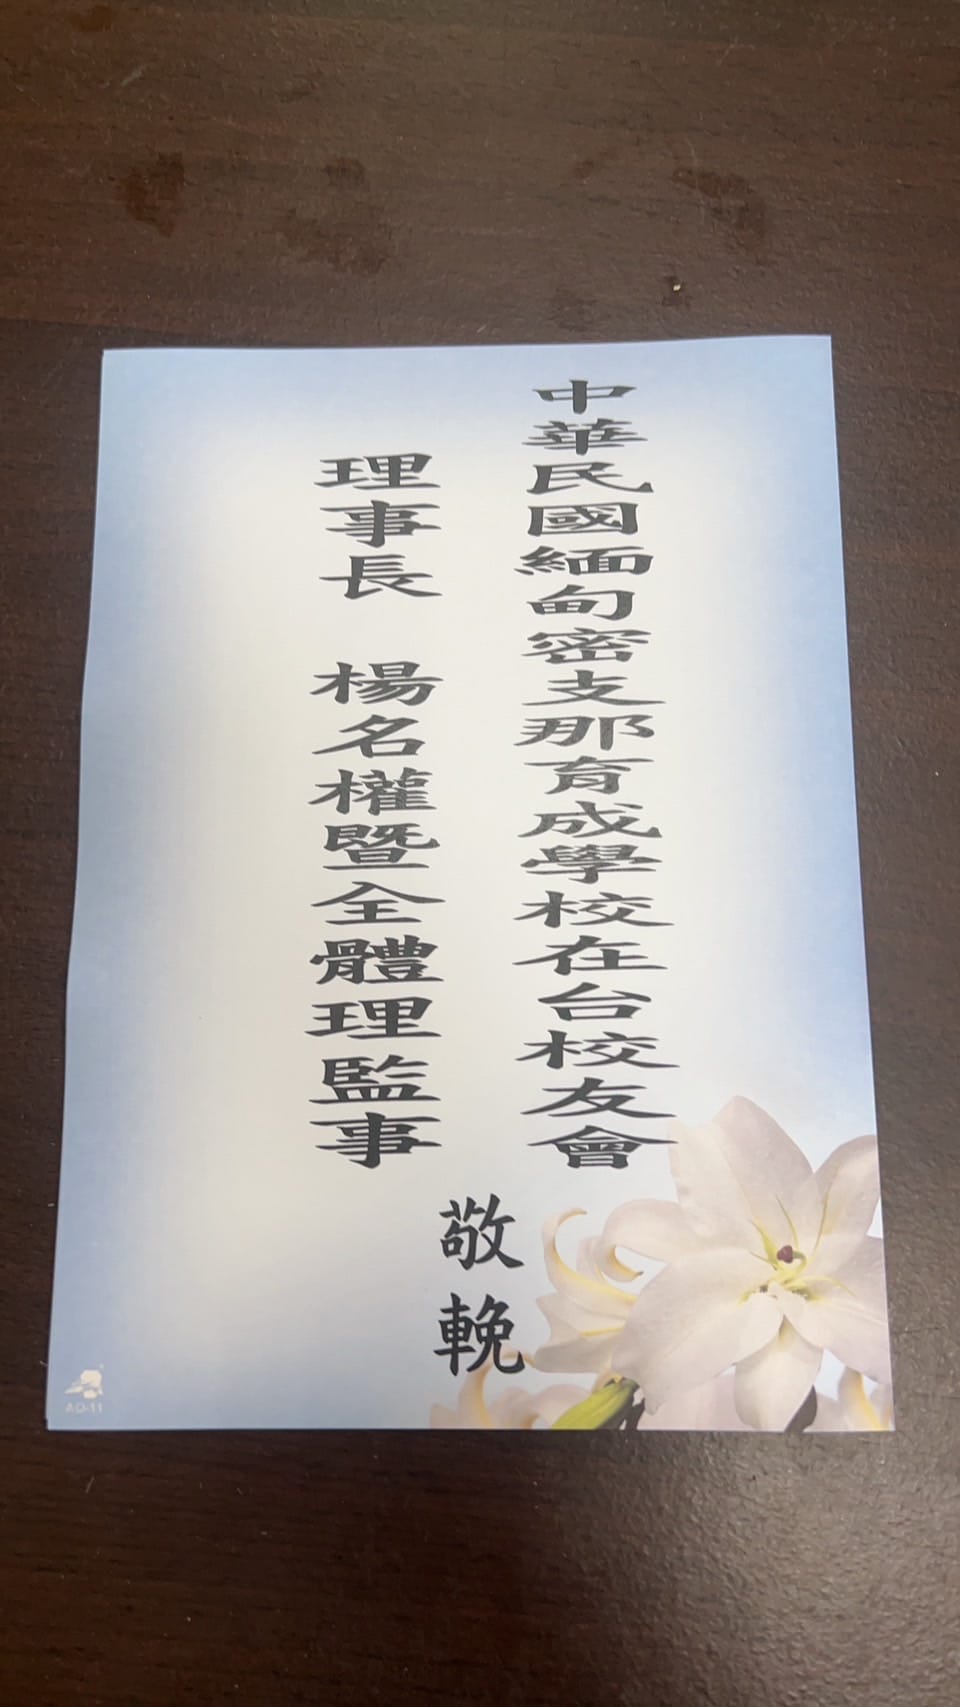 中華民國緬甸密支那育成學校在台校友會
理事長 楊名權暨全體理監事
敬輓
AD-11